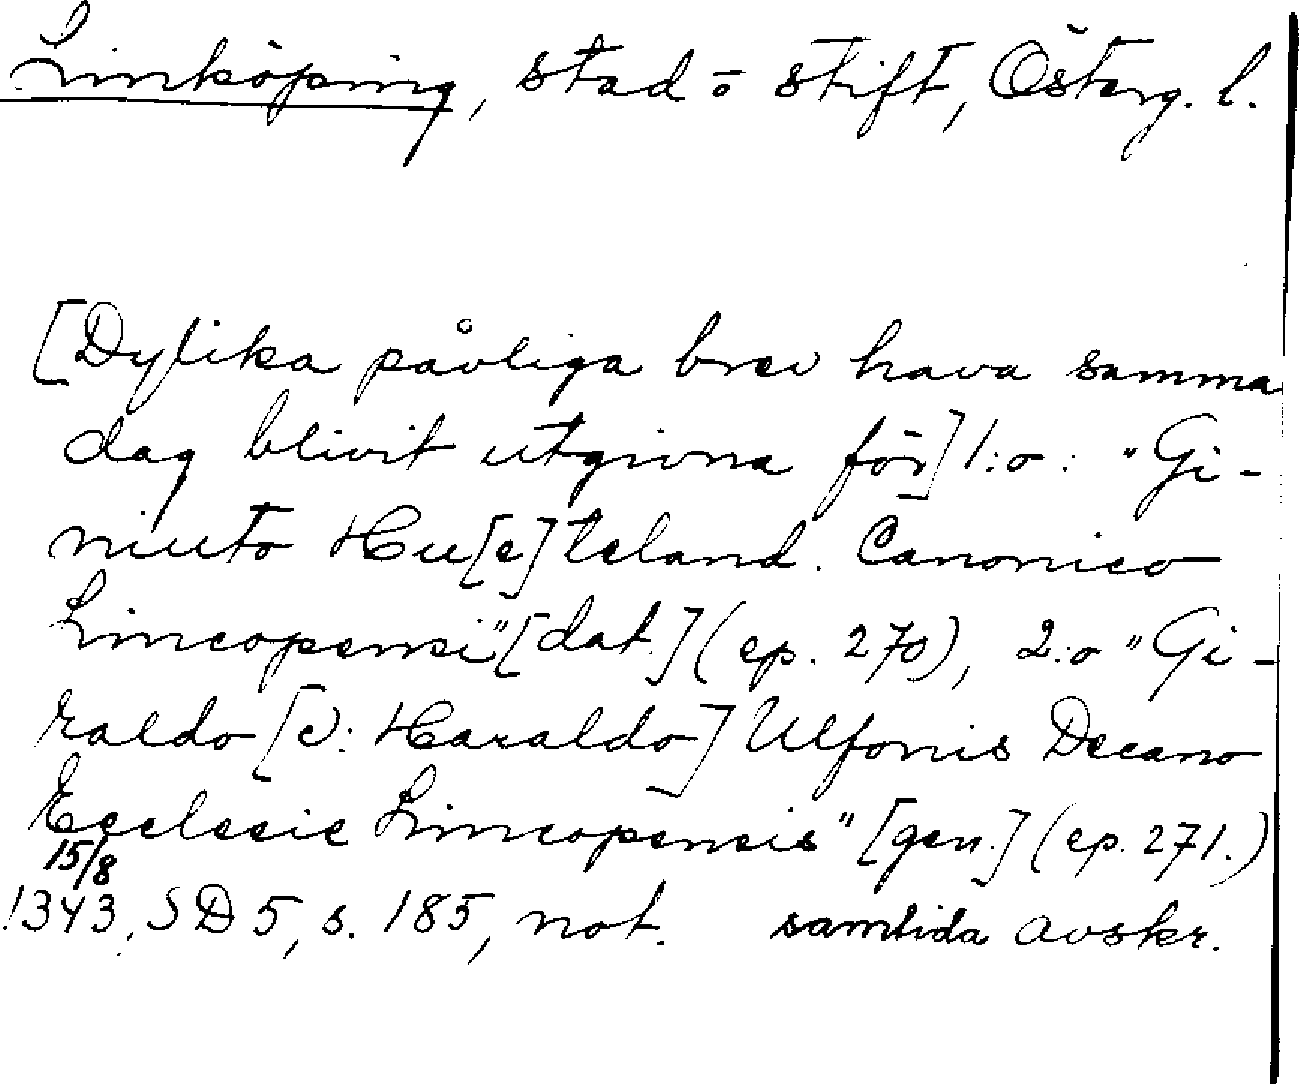 Linköping, stad o stift, Österg. l.
[Dylika påvliga brev hava samma
dag blivit utgivna för] 1:o: "Gi-
niuto Hu[e]teland. Canonico
Lincopensi" [dat.] (ep. 270), 2:o "Gi-
raldo [ɔ: Haraldo] Ulfonis Decano
Ecclesie Lincopensis" [gen.] (ep. 271.)
15/8
1343, SD 5, s. 185, not. samtida avskr.